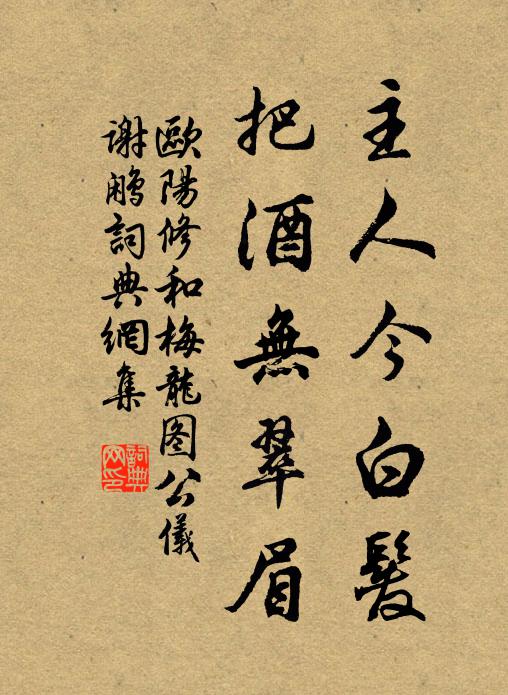 主人今白髮
把酒無翠眉
歐陽修和梅龍图公儀
謝鷳詞典網集
詞典网印